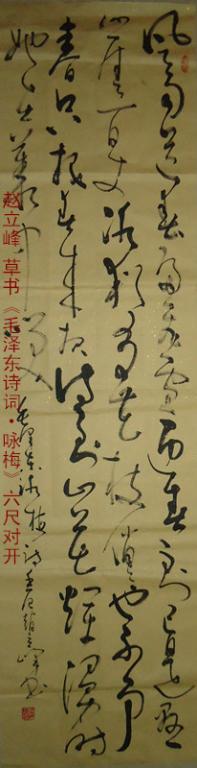 风雨送春归飞雪迎春到已是悬
崖百丈冰犹有花枝俏俏也不争
春只把春来报待到山花烂漫时
她在丛中笑
毛泽东咏梅诗 赵立峰书
赵立峰 草书《毛泽东诗词·咏梅》六尺对开